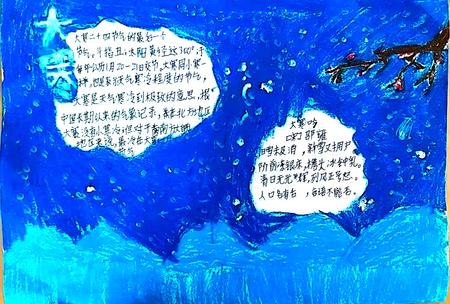 大寒
大寒二十四节气的最后一个
节气。斗指丑；太阳黄经达300°；于
每年公历1月20—21日交节。大寒同小寒一
样，也是表示天气寒冷程度的节气，
大寒是天气寒冷到极致的意思，根
中国长期以来的气象记录，在北方地区
大寒没有小寒冷；但对于南方大部
地区来说，最冷是在大
节气
大寒吟
宋 邵雍
旧雪未及消，新雪又拥户
阶前冻银床，檐头冰钟乳
清日无光辉，烈风正号怒
人口各有舌，言语不能吐。